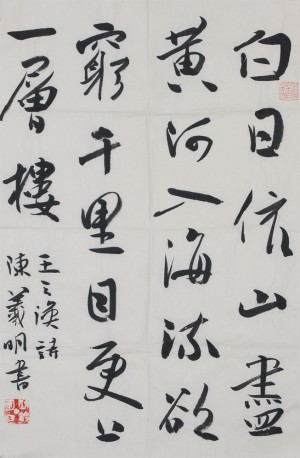 白日依山盡
黄河入海流欲
窮千里目更上
一層樓
王之渙詩
陳義明書